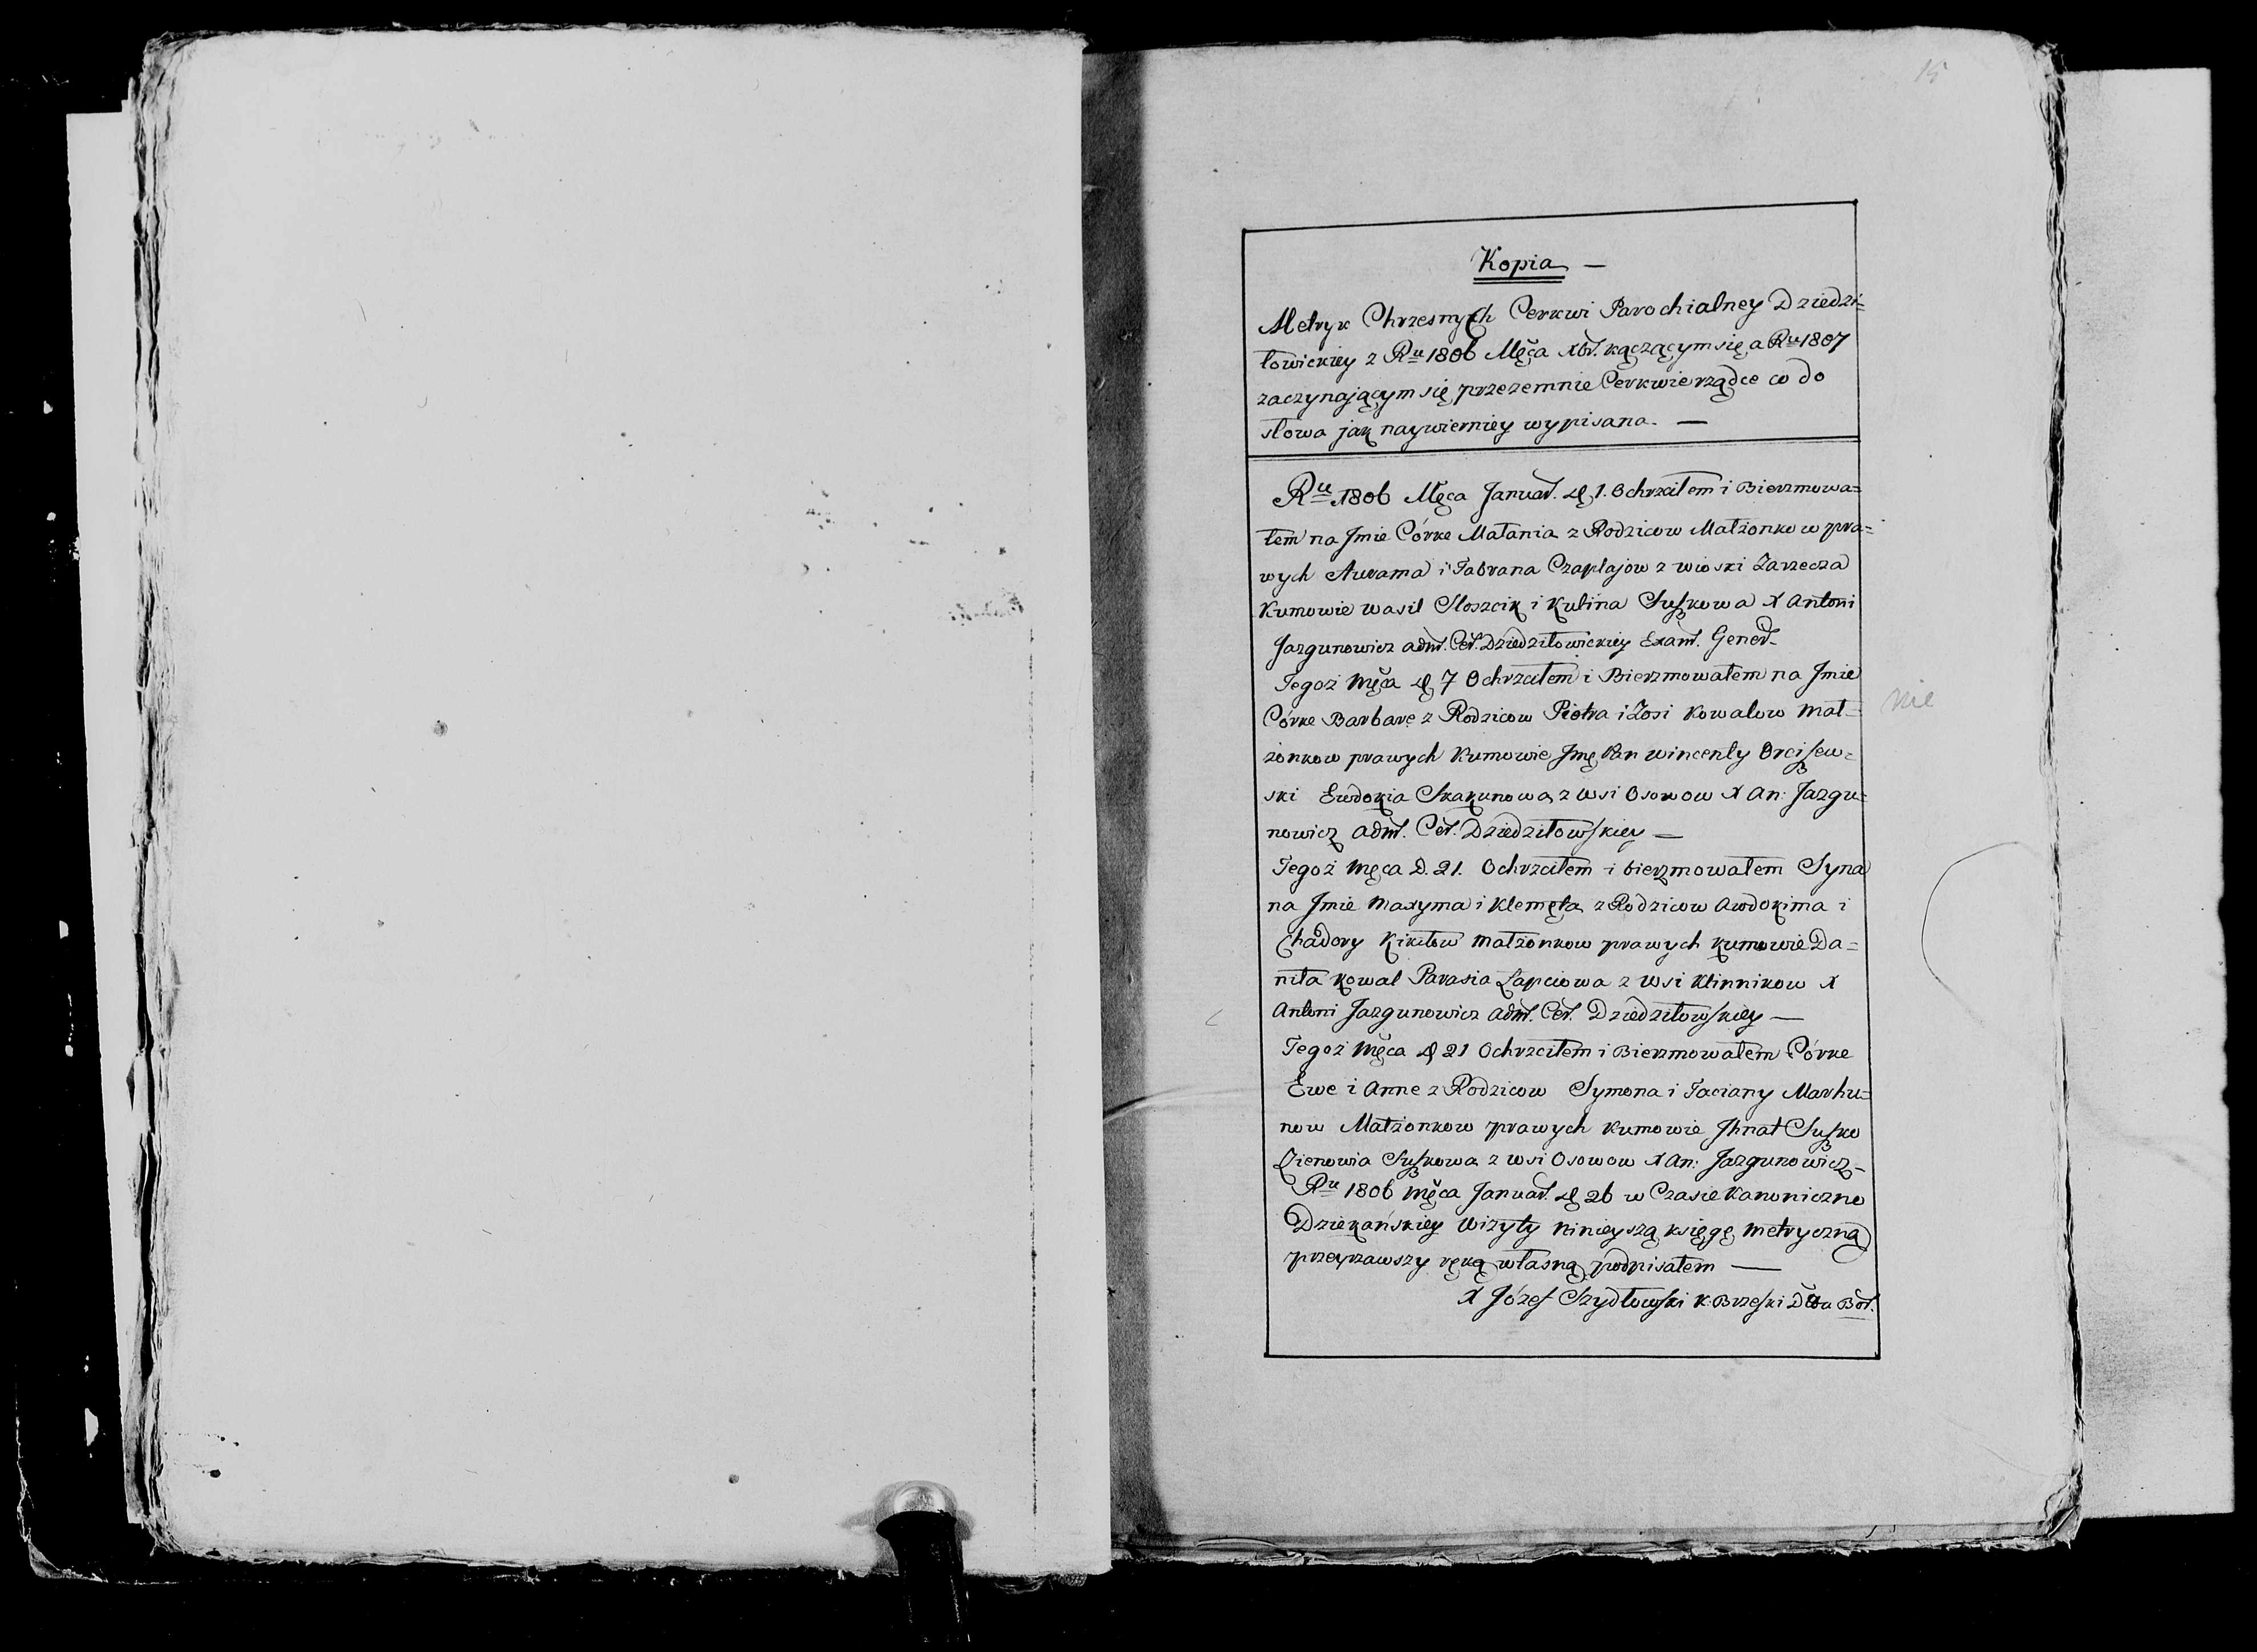 15
Kopia —
Metryk Chrzesnych Cerkwi Parochialney Dziedzi=
łowickiey z Ru 1806 Męca Xbr. kączącym się, a Ru 1807
zaczynającym się przezemnie Cerkwie rządce co do
słowa jak naywierniey wypisana. —
Ru 1806 Męca Januar. D. 1. Ochrzciłem i Bierzmowa=
łem na Jmie Córke Małania z Rodzicow Małżonkow pra=
wych Awrama i Tabrana Czaplajow z wioski Zarzecza
Kumowie wasil Słoszcik i Kulina Suszkowa X Antoni
Jazgunowicz adm. Cer. Dziedziłowickiey Exam. Gener.
Tegoż Męca D. 7 Ochrzciłem i Bierzmowałem na Jmie
Córke Barbarę z Rodzicow Piotra i Zosi Kowalow Mał=
nie
żonkow prawych Kumowie Jmę Pan wincenty Orciszew=
ski Ewdokia Skakunowa z wsi Osowow X An: Jazgu=
nowicz adm. Cer. Dziedziłowskiey —
Tegoż Męca D. 21. Ochrzciłem i bierzmowałem Syna
na Jmie Maxyma i Klemęta z Rodzicow Awdokima i
Chadory Kikitow małżonkow prawych kumowie Da=
niła kowal Parasia Łapciowa z wsi Klinnikow X
Antoni Jazgunowicz adm. Cer. Dziedziłowskiey —
Tegoż Męca D 21 Ochrzciłem i Bierzmowałem Córke
Ewe i Anne z Rodzicow Symona i Taciany Marhu=
now Małżonkow prawych Kumowie Jhnat Suszko
Zienowia Suszkowa z wsi Osowow X An: Jazgunowicz —
Ru 1806 Męca Januar. D 26 w Czasie Kanoniczno
Dziekańskiey Wizyty Ninieyszą księgę Metryczną
przeyrzawszy ręką własną podpisałem —
X Józef Szydłowski K. Brzeski Bor.